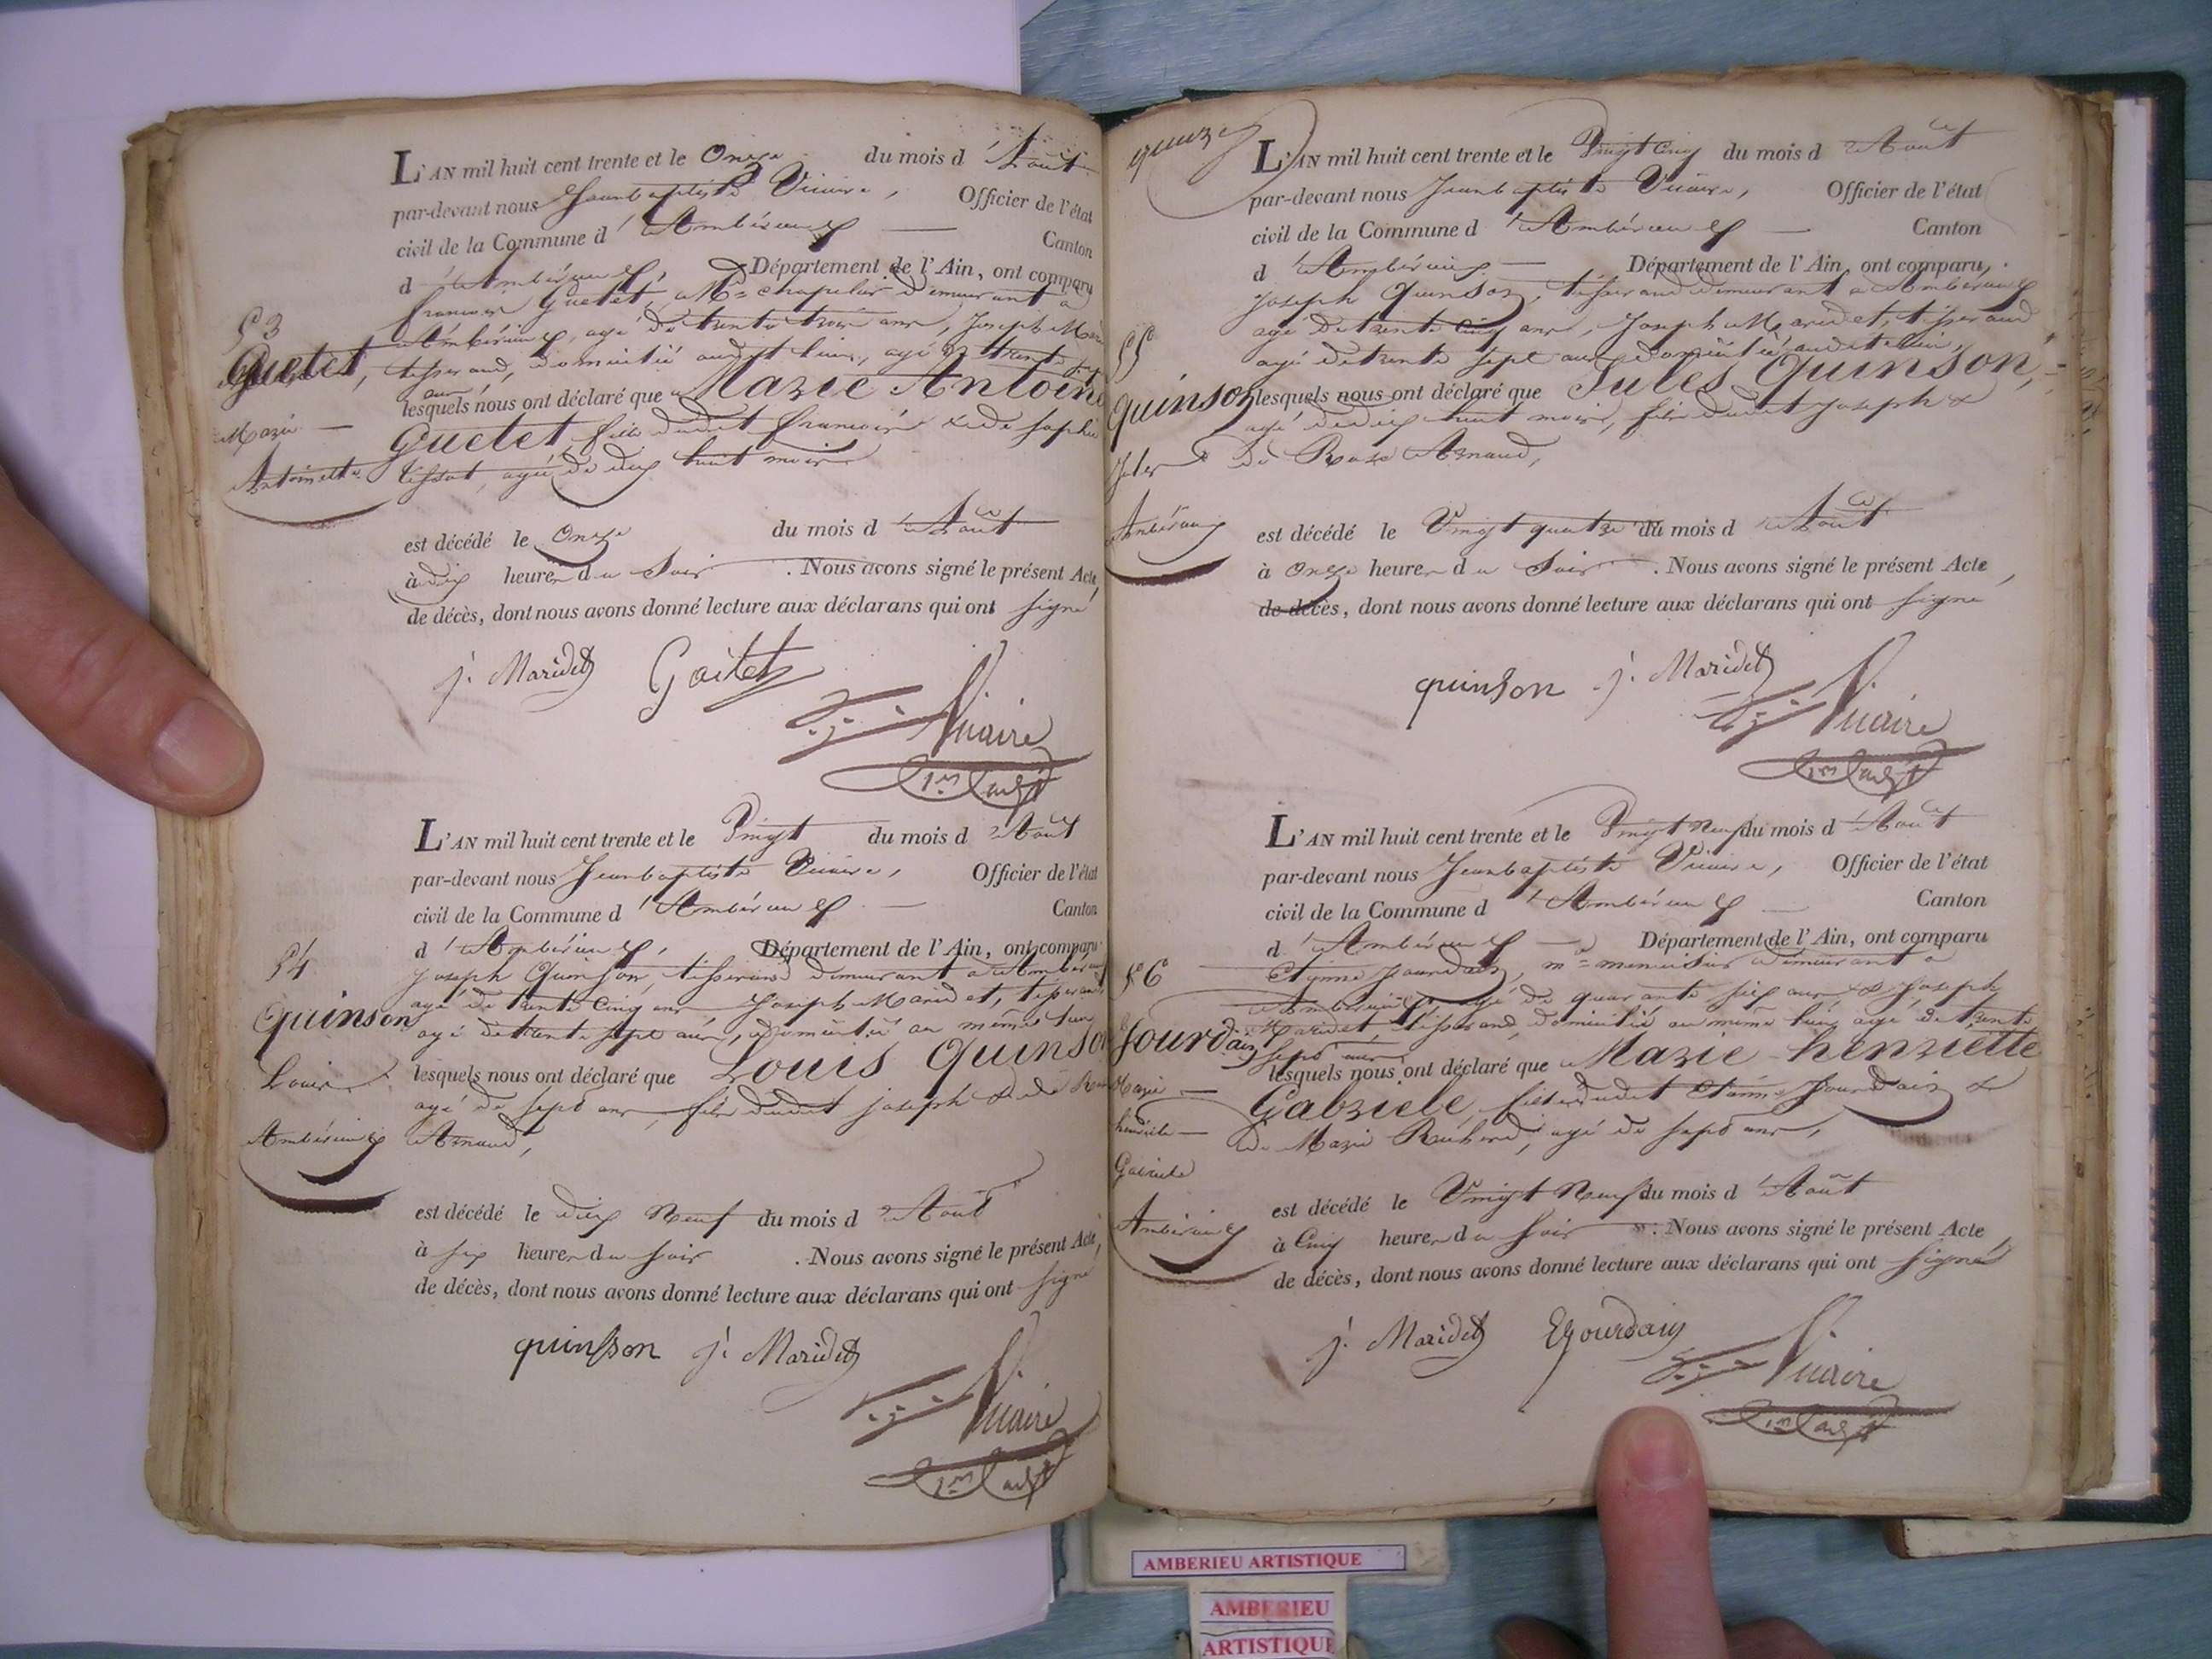 53
Guetet,
Marie
Antoinette
L'AN mil huit cent trente et le Onze du mois d'Août
par-devant nous Jean baptiste Vicaire, Officier de l'état
civil de la Commune d'Ambérieux Canton
d'Ambérieux, Département de l'Ain, ont comparu
francois Guetet, M.e chapelier demeurant a
Ambérieux, agé de trente trois ans, Joseph Maridet
tisserand, domicilié audit lieu, agé de trente sept
ans
lesquels nous ont déclaré que Marie Antoine
Guetet fille dudit francois & de sophie
tissot, agée de dix huit mois
est décédé le Onze du mois d'Août
à dix heures du Soir. Nous avons signé le présent Acte
de décès, dont nous avons donné lecture aux déclarans qui ont signé
j. Maridet Gaitet
Vicaire
54
Quinson
Louis
Ambérieux
L'AN mil huit cent trente et le Vingt du mois d'Août
par-devant nous Jean baptiste Vicaire, Officier de l'état
civil de la Commune d'Ambérieux Canton
d'Ambérieux, Département de l'Ain, ont comparu
Joseph Quinson, tisserand demeurant a Ambérieux
agé de trente Cinq ans Joseph Maridet, tisserand
agé de trente sept ans, domicilié au même lieu
lesquels nous ont déclaré que Louis Quinson
agé de sept ans, fils dudit joseph & de Rose
Arnaud,
est décédé le dix Neuf du mois d'Août
à six heures du soir. Nous avons signé le présent Acte,
de décès, dont nous avons donné lecture aux déclarans qui ont signé
quinson j. Maridet
Vicaire
quinze
55
Quinson
Jules
Ambérieux
L'AN mil huit cent trente et le Vingt Cinq du mois d'Août
par-devant nous Jean baptiste Vicaire, Officier de l'état
civil de la Commune d'Ambérieux Canton
d'Ambérieux Département de l'Ain, ont comparu,
Joseph Quinson, tisserand demeurant a Ambérieux
agé de trente Cinq ans, Joseph Maridet, tisserand
agé de trente sept ans domicilié audit lieu,
lesquels nous ont déclaré que Jules Quinson,
agé de dix huit mois, fils dudit Joseph &
de Rose Arnaud,
est décédé le Vingt quatre du mois d'Août
à Onze heures du Soir. Nous avons signé le présent Acte,
de décès, dont nous avons donné lecture aux déclarans qui ont signé
quinson j. Maridet
Vicaire
56
Jourdain
Marie
henriette
Gabriele
Ambérieux
L'AN mil huit cent trente et le Vingt Neuf du mois d'Août
par-devant nous Jean baptiste Vicaire, Officier de l'état
civil de la Commune d'Ambérieux Canton
d'Ambérieux Département de l'Ain, ont comparu
Etienne Jourdain, m.e menuisier demeurant a
Ambérieux, agé de quarante six ans & Joseph
Maridet, tisserand, domicilié au même lieu, agé de trente
Sept ans
lesquels nous ont déclaré que Marie henriette
Gabriele, fille dudit Etienne Jourdain &
de Marie Richerd, agée de sept ans,
est décédé le Vingt Neuf du mois d'Août
à Cinq heures du Soir. Nous avons signé le présent Acte
de décès, dont nous avons donné lecture aux déclarans qui ont signé
j. Maridet EJourdain
Vicaire
AMBERIEU ARTISTIQUE
AMBERIEU
ARTISTIQUE